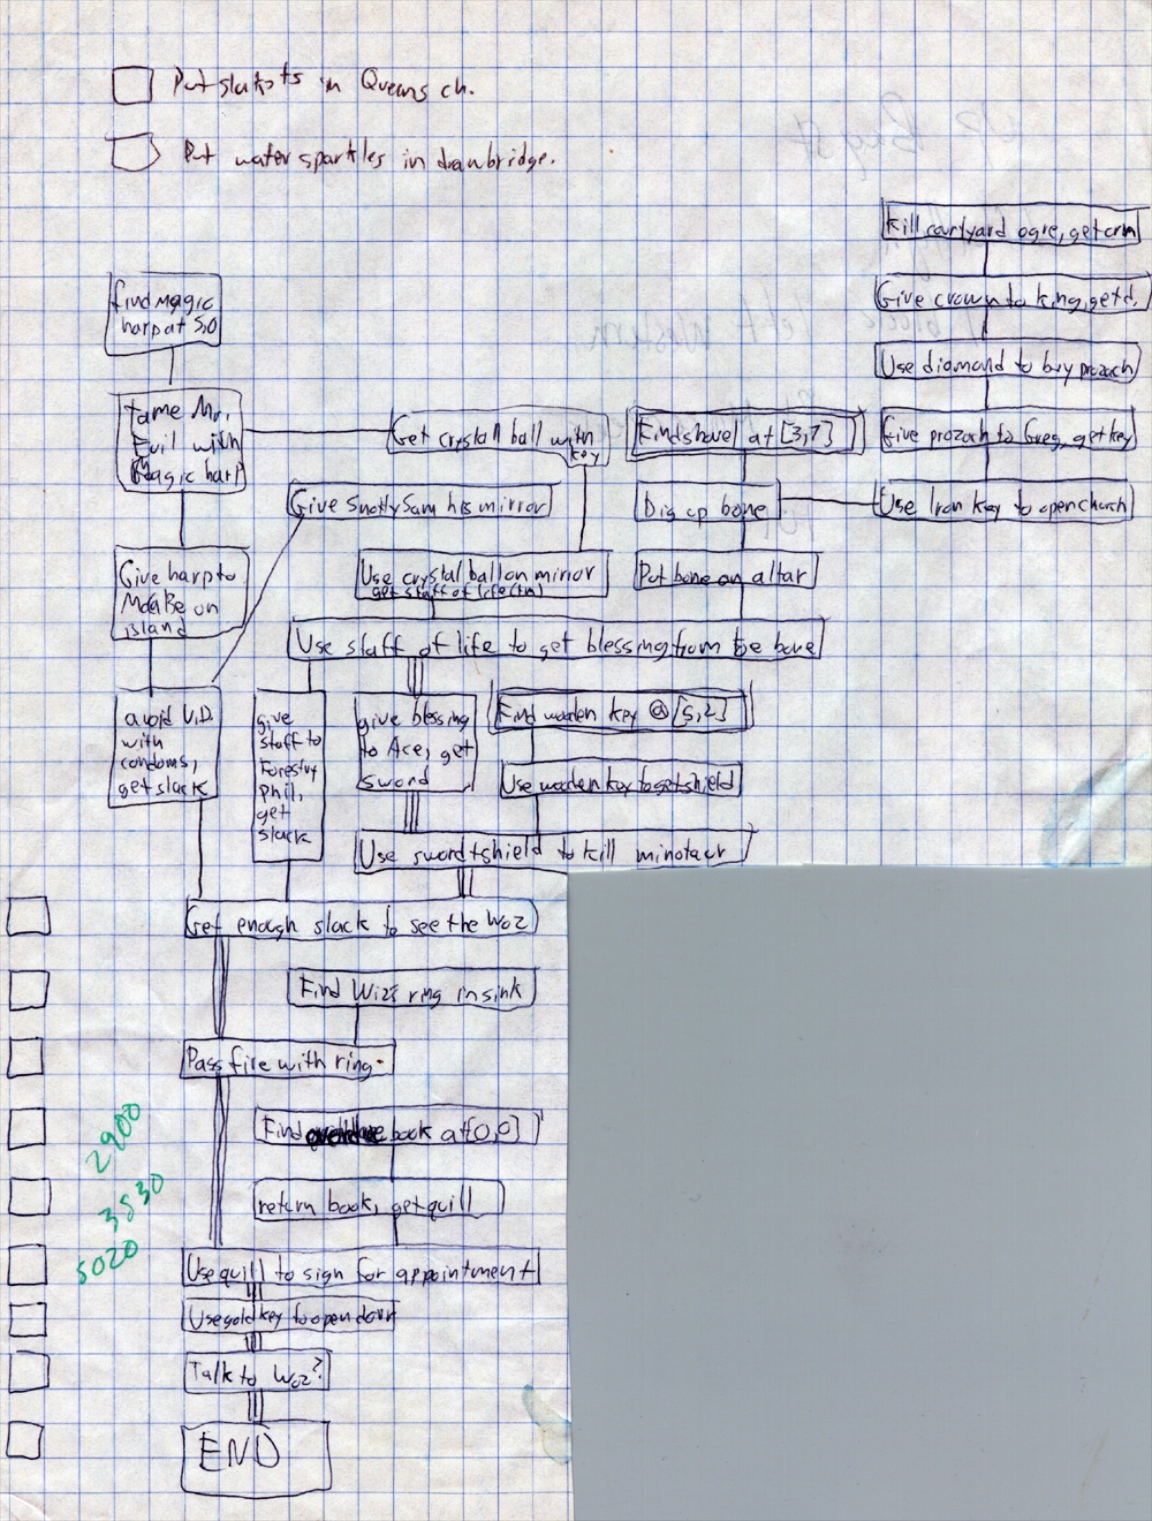 Put slakots in Queens ch.
Put water sparkles in drawbridge.
Kill courtyard ogre, get crwn
Give crown to king, get d.
Use diamond to buy prozach
Give prozach to Greg, get key
Use Iron Key to open church
Find magic
harp at 5,0
Tame Mr.
Evil with
Magic harp
Get crystall ball with
key
Find shovel at [3,7]
Give Snotty Sam his mirror
Dig up bone
Give harp to
on
island
Use crystal ball on mirror
get staff of life (tm)
Put bone on altar
Use staff of life to get blessing from the bone
avoid V.D.
with
condoms,
get slack
give
staff to
Forestry
phil,
get
slack
give blessing
to Ace, get
sword
Find wooden key @ [5,2]
Use wooden key to get shield
Use sword + shield to kill minotaur
Get enough slack to see the Woz
Find Wiz's ring in sink
Pass fire with ring.
Find book at [0,0]
return book, get quill
2900
3530
5020
Use quill to sign for appointment
Use gold key to open door
Talk to Woz?
END